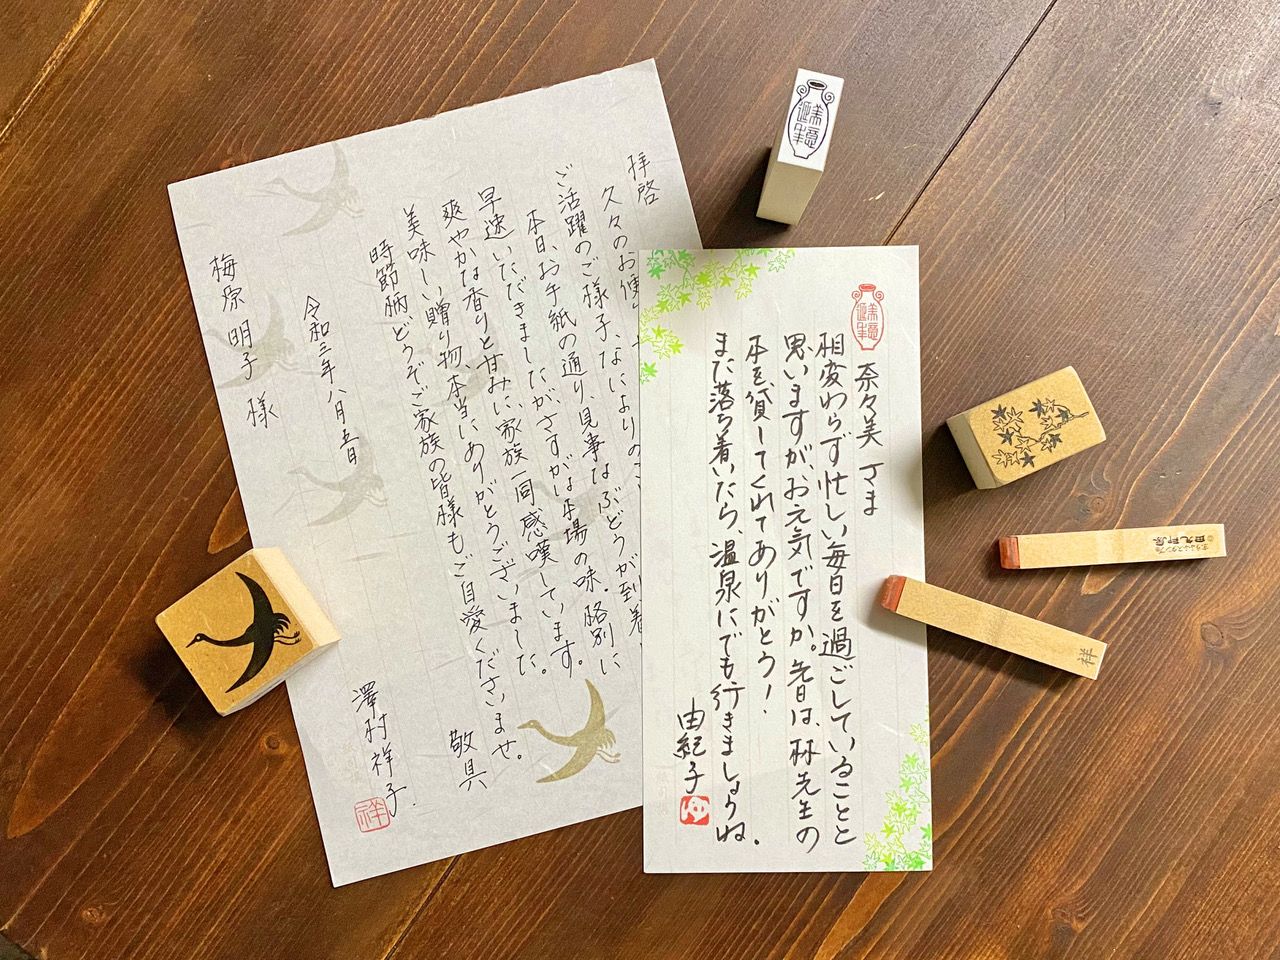 拝啓
久々のお便り、なによりの
ご活躍のご様子、
本日、お手紙の通り、見事なぶどうが到着
早速いただきましたがさすがは本場の味・格別に
爽やかな香りと甘みに、家族一同感嘆しています。
美味しい贈り物、本当にありがとうございました。
時節柄、どうぞご家族の皆様もご自愛くださいませ。
敬具
令和三年八月五日
澤村祥子
祥
梅原明子様
奈々美さま
相変わらず忙しい毎日を過ごしていることと
思いますが、お元気ですか。先日は、林先生の
本を貸してくれてありがとう！
また落ち着いたら、温泉にでも行きましょうね.
由紀子
ゆ
祥